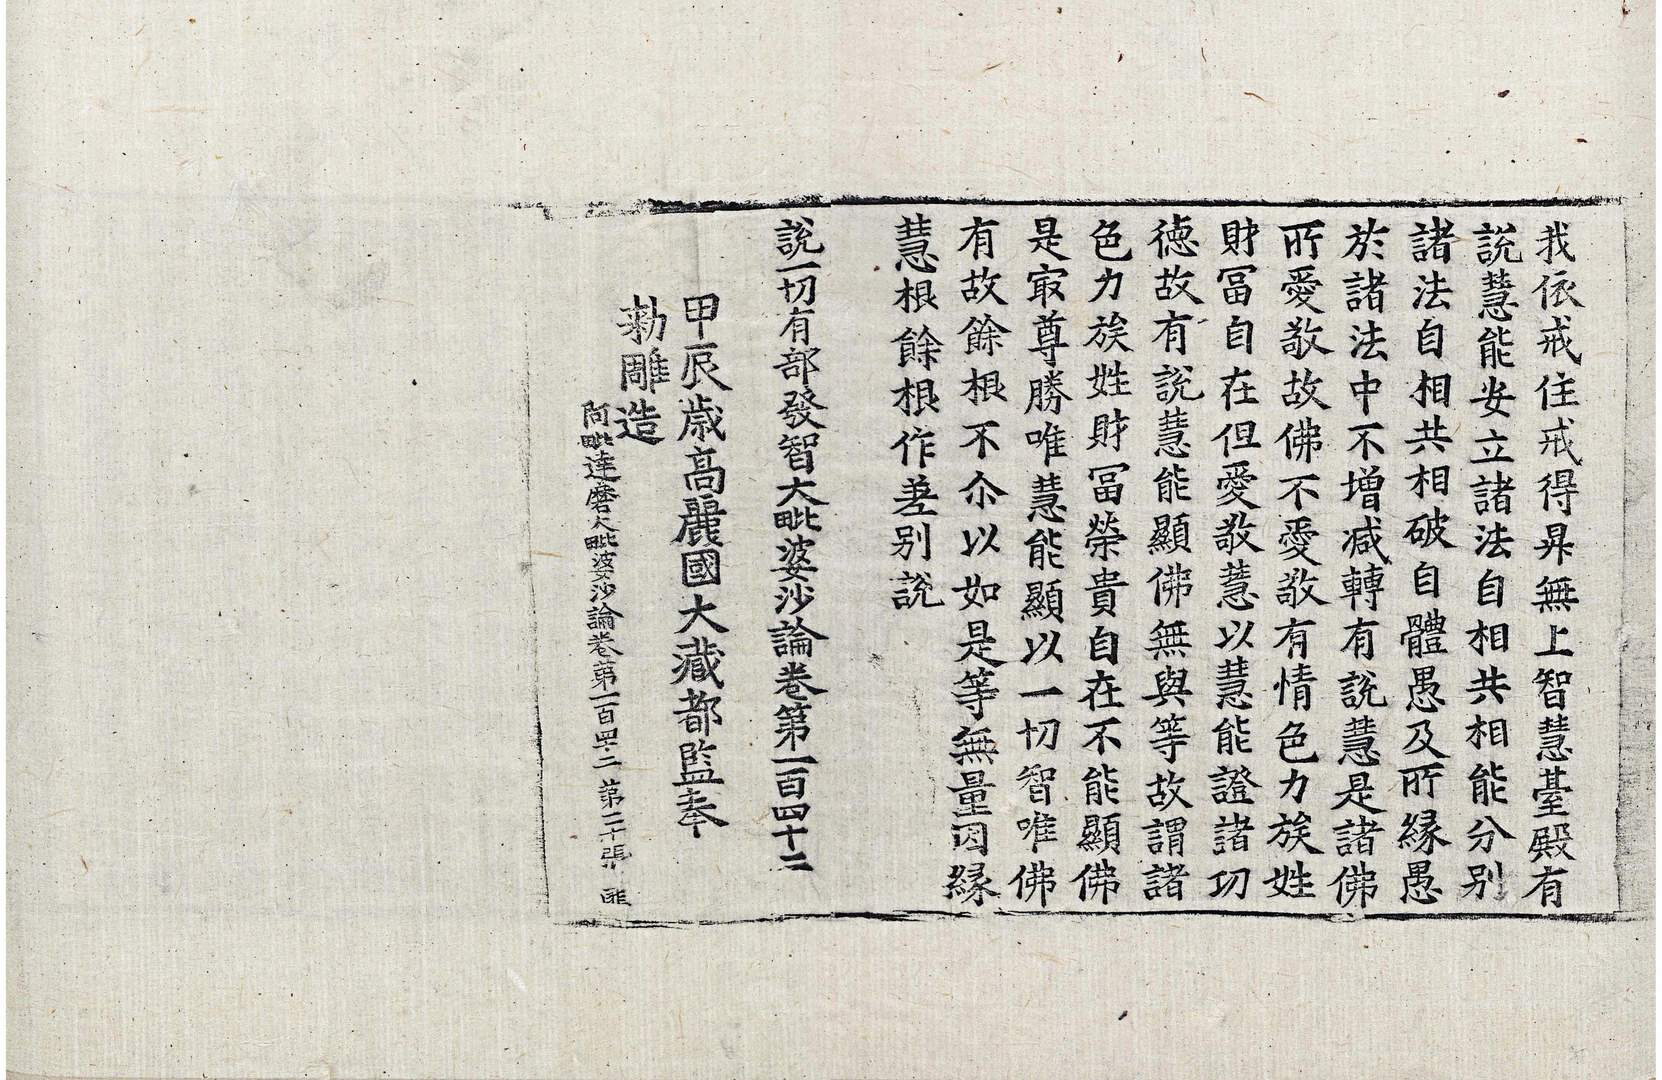 我依戒住戒得昇無上智慧臺殿有
說慧能安立諸法自相共相能分別
諸法自相共相破自體愚及所縁愚
於諸法中不增减轉有說慧是諸佛
所愛敬故佛不愛敬有情色力族姓
財冨自在但愛敬慧以慧能證諸功
徳故有說慧能顯佛無與等故謂諸
色力族姓財冨榮貴自在不能顯佛
是㝡尊勝唯慧能顯以一切智唯佛
有故餘根不尒以如是等無量因縁
慧根餘根作差别說
說一切有部發智大毗婆沙論卷第一百四十二
甲辰歳高麗國大藏都監奉
勑雕造
阿毗達磨大毗婆沙論卷第一百四十二 第二十張 匪